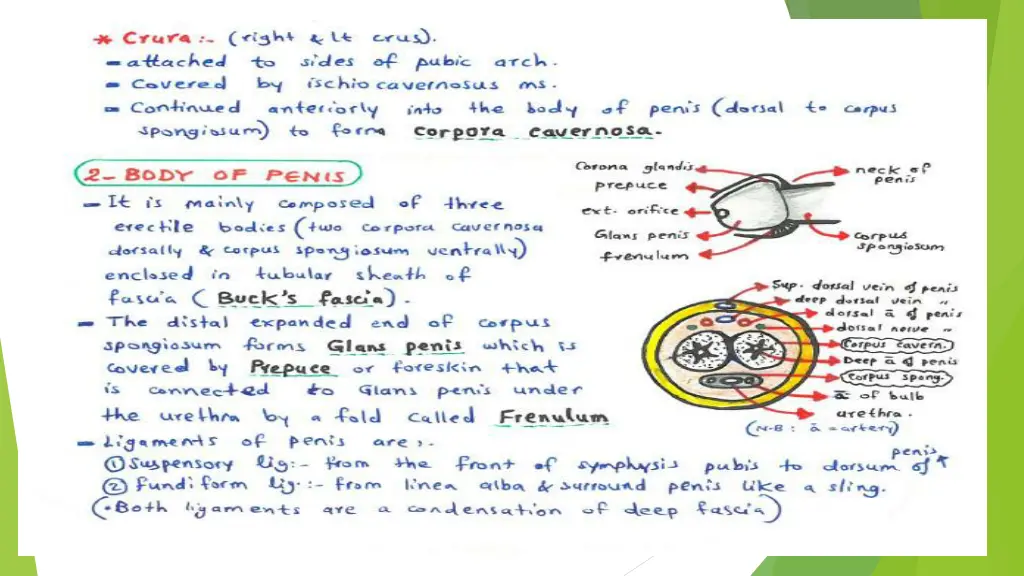 * Crura :- (right & Lt crus).
- attached to sides of pubic arch.
- Covered by ischiocavernosus ms.
- Continued anteriorly into the body of penis (dorsal to corpus
spongiosum) to form corpora cavernosa.
2- BODY OF PENIS
- It is mainly composed of three
erectile bodies (two corpora cavernosa
dorsally & corpus spongiosum ventrally)
enclosed in tubular sheath of
fascia ( Buck's fascia) .
- The distal expanded end of corpus
spongiosum forms Glans penis which is
covered by Prepuce or foreskin that
is connected to Glans penis under
the urethra by a fold called Frenulum
- Ligaments of penis are :.
① Suspensory lig:- from the front of symphysis pubis to dorsum of penis
② fundiform lig :- from linea alba & surround penis like a sling.
(• Both ligaments are a condensation of deep fascia)
Corona glandis
prepuce
ext. orifice
Glans penis
frenulum
neck of
penis
corpus
spongiosum
Sup. dorsal vein of penis
deep dorsal vein "
dorsal ā of penis
dorsal nerve "
Corpus cavern.
Deep ā of penis
Corpus spong.
ā of bulb
urethra .
(N.B : ā = artery)